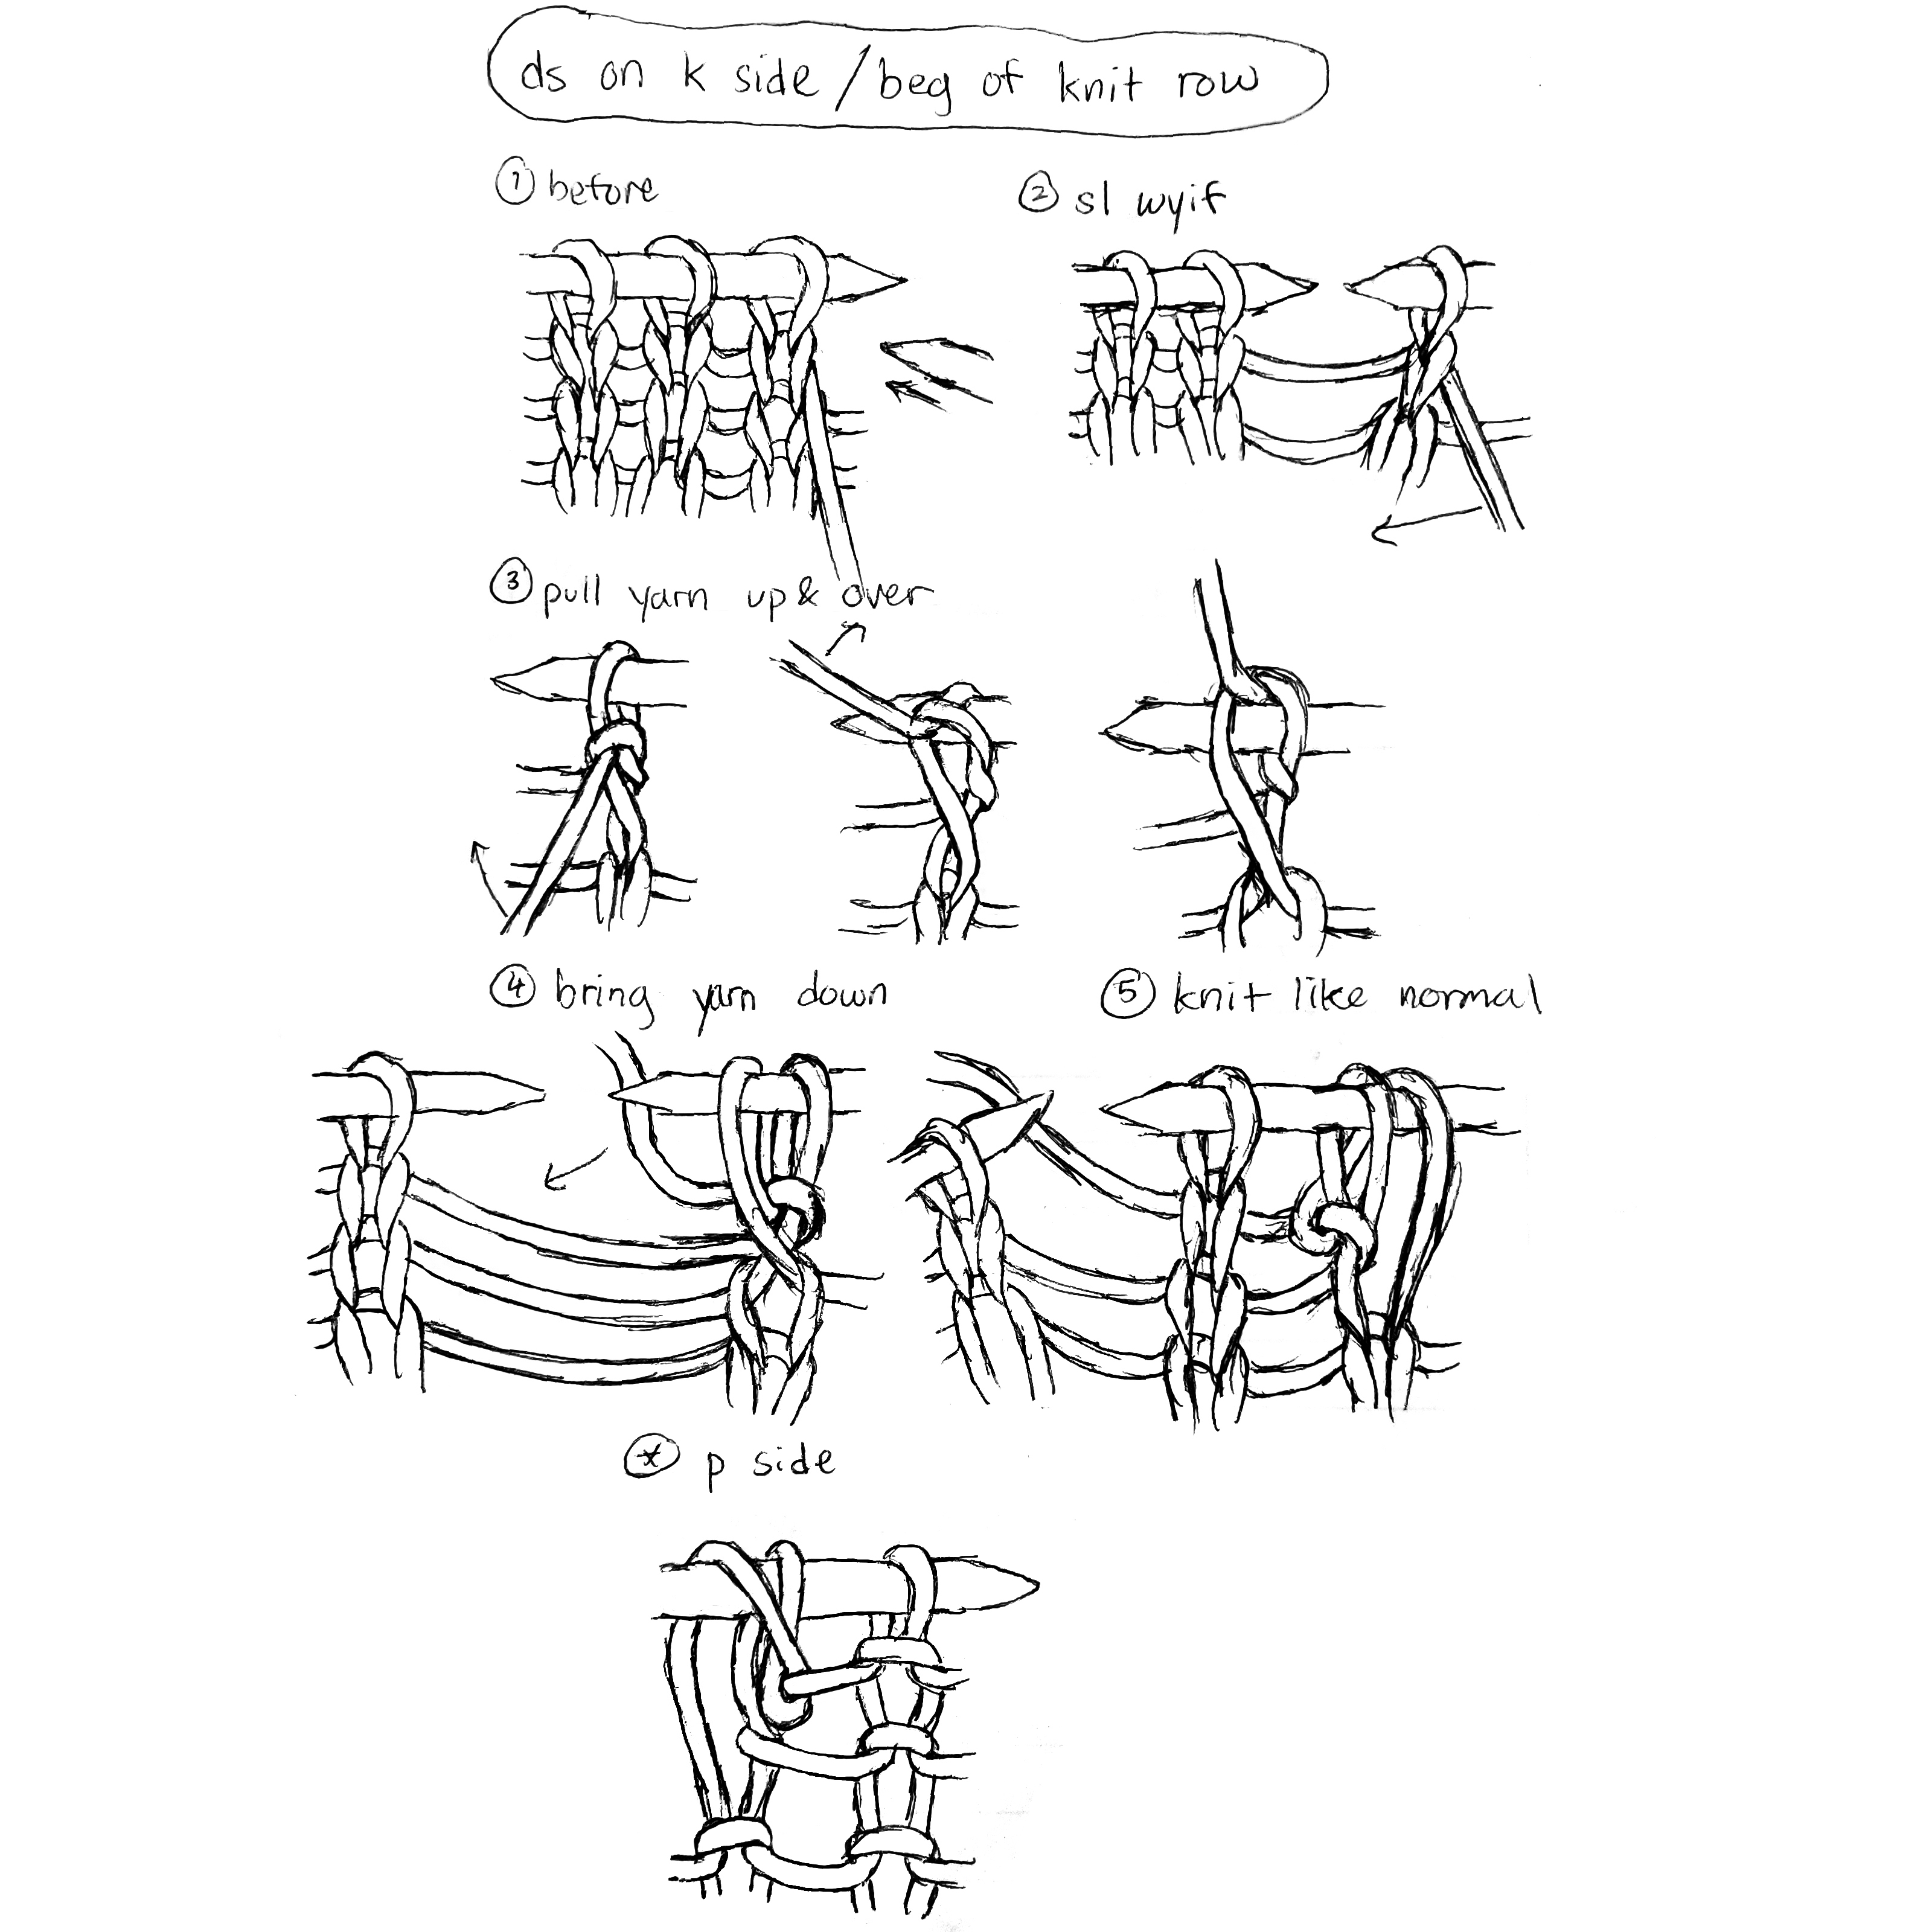 ds on k side / beg of knit row
① before
② sl wyif
③ pull yarn up & over
④ bring yarn down
⑤ knit like normal
* p side